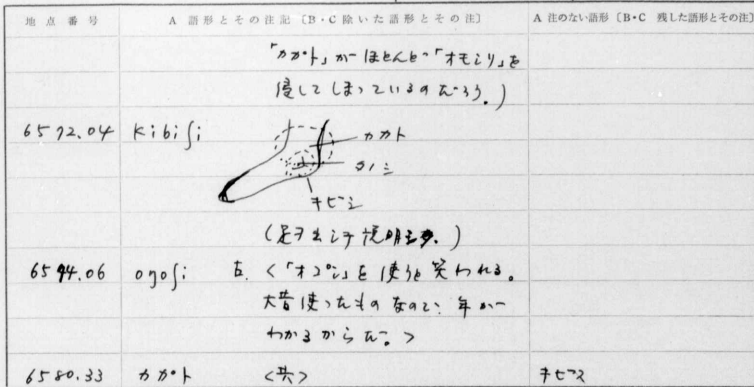 地点番号 A 語形とその注記〔B・C 除いた語形とその注〕 A 注のない語形〔B・C 残した語形とその注〕
「カカ゜ト」か゛ほとんと゛「オモシリ」を
侵してしまっているのだろう。)
6572.04 kibiʃi
カカト
カノシ
キビシ
(足ヲ出シテ説明
6544.06 oŋoʃi 古.〈「オコ゜シ」を使うと笑われる。
大昔使ったものなので、年か゛
わかるからだ。〉
6580.33 カカ゜ト 〈共〉 キビス